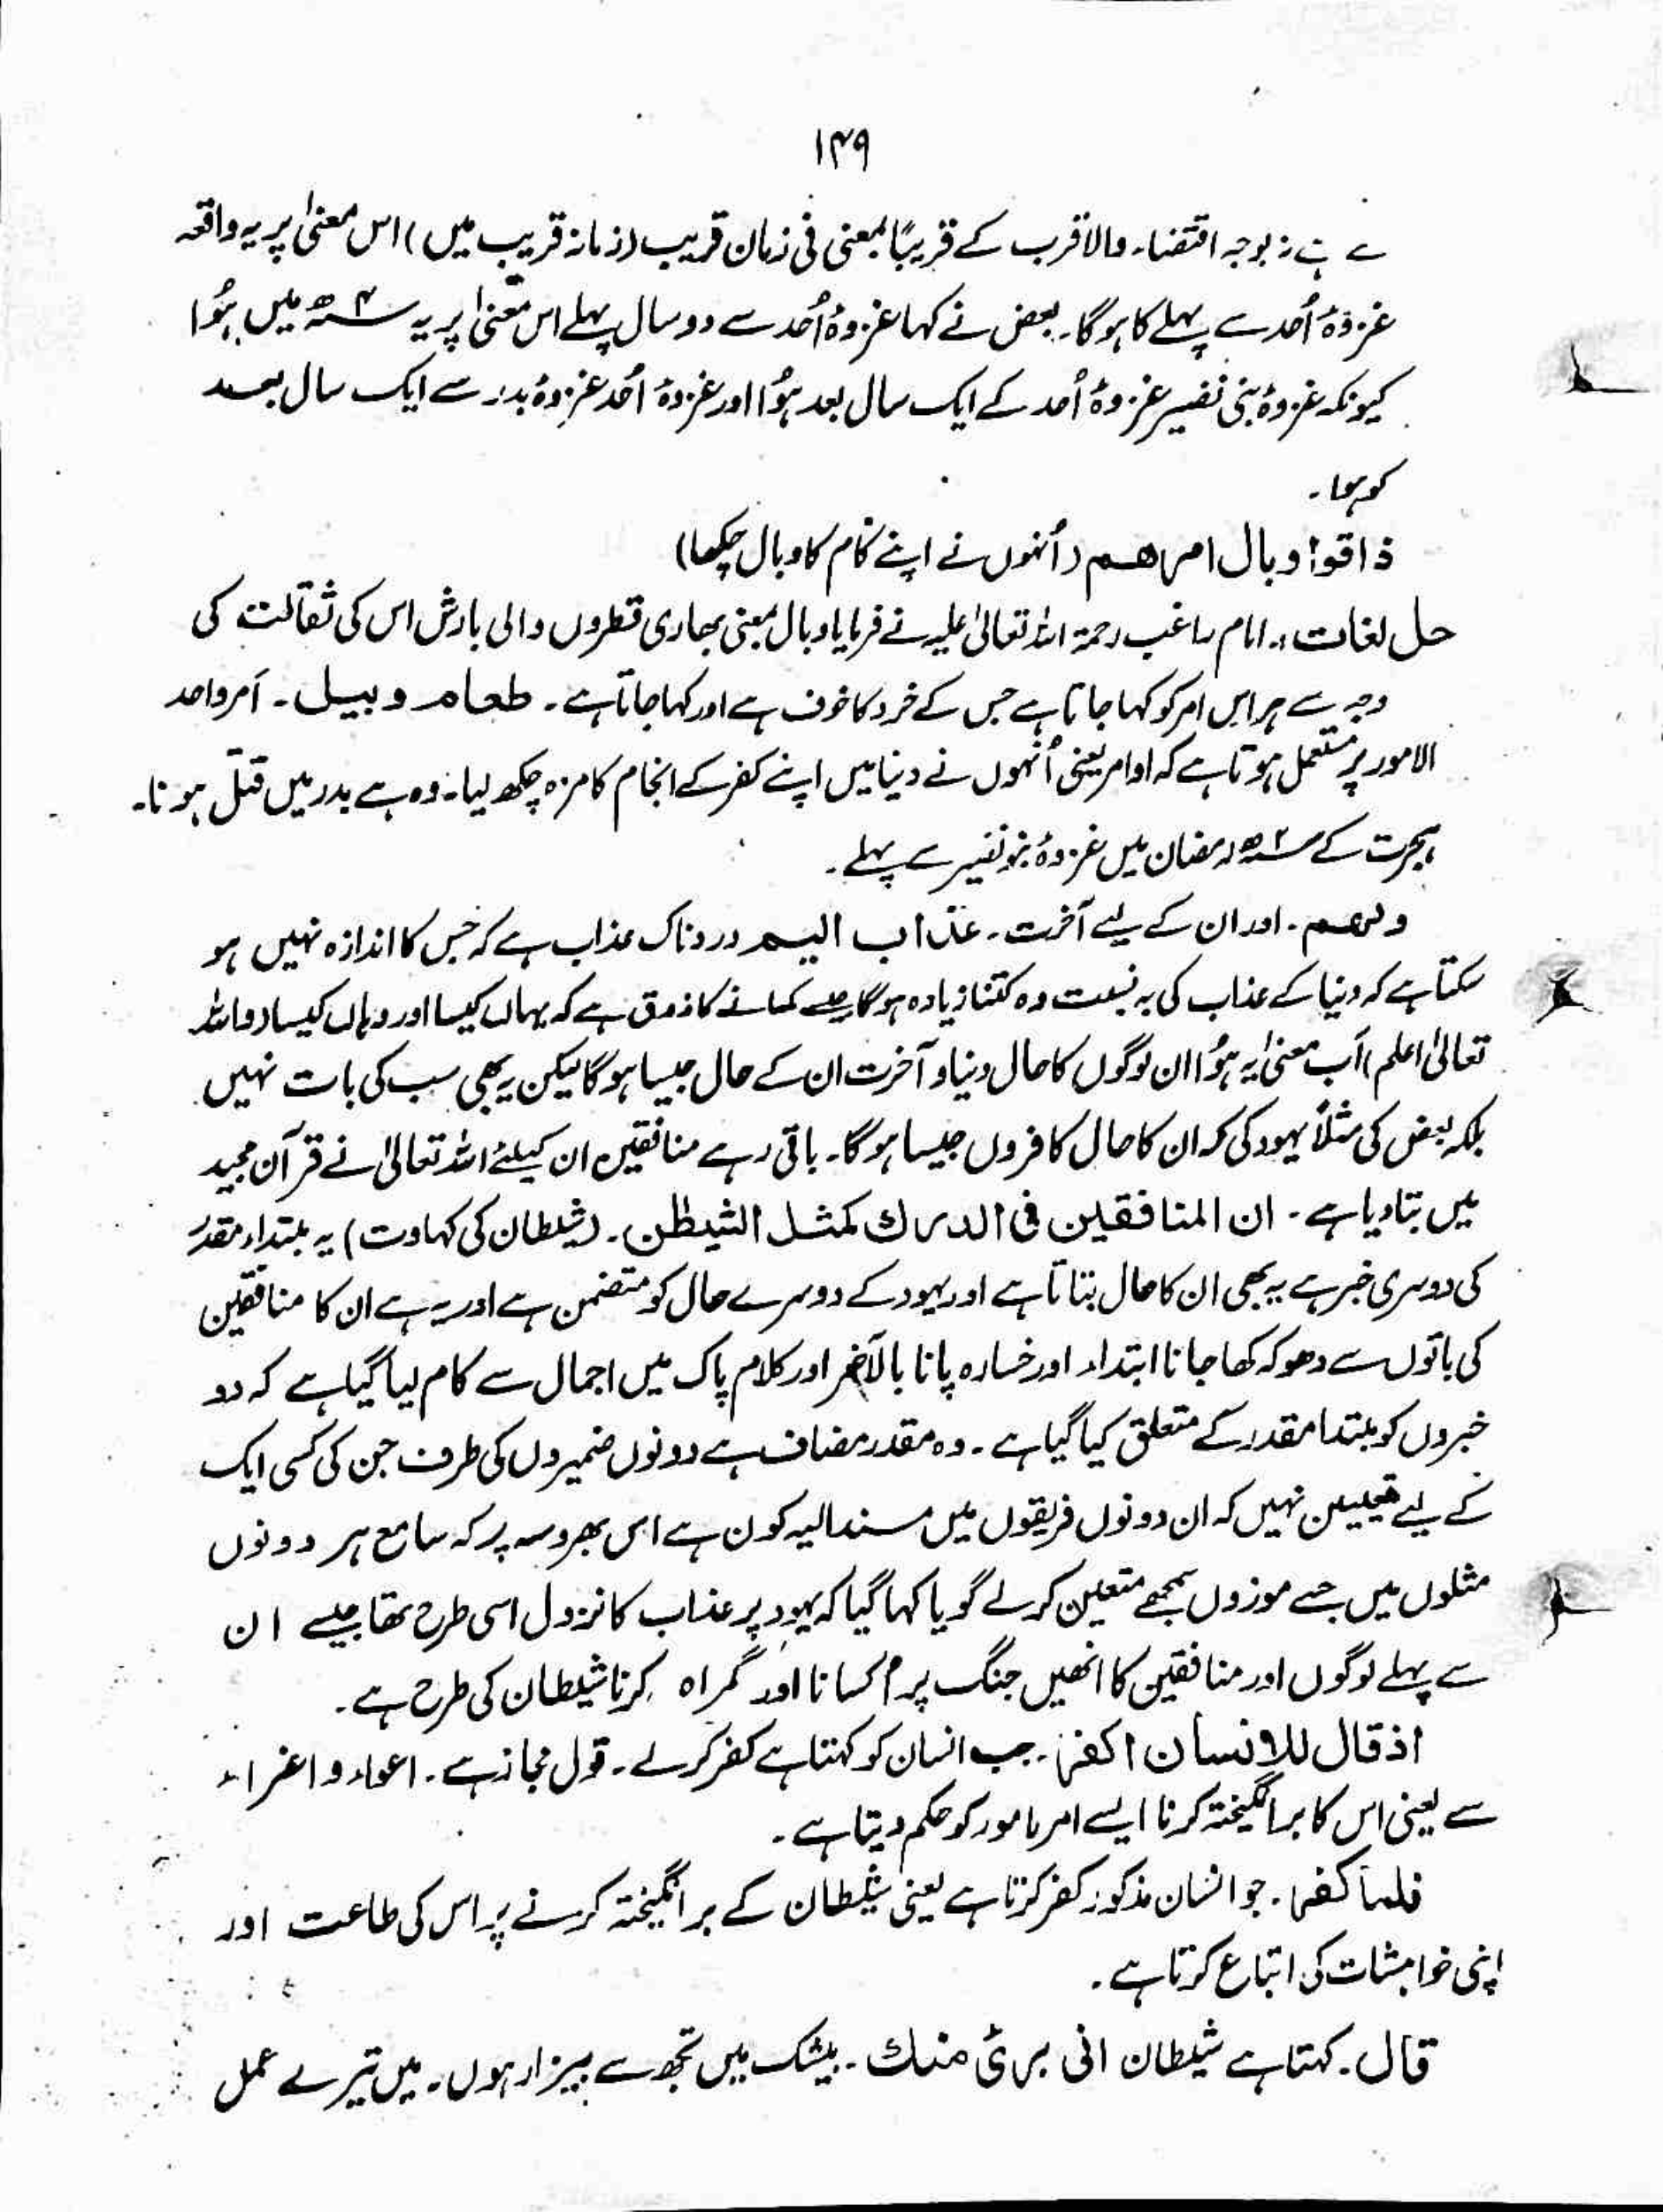 ۱۴۹
سے ہے نہ بوجہ اقتضاء والاقرب کے قریبًا بمعنی فی زمان قریب (زمانہ قریب میں) اس معنیٰ پر یہ واقعہ
غزوۂ اُحد سے پہلے کا ہوگا۔ بعض نے کہا غزوۂ اُحد سے دو سال پہلے اس معنیٰ پر یہ ۴ھ میں ہُوا
کیونکہ غزوۂ بنی نضیر غزوۂ اُحد کے ایک سال بعد ہُوا اور غزوۂ اُحد غزوۂ بدر سے ایک سال بعد
کو ہوا۔
ذاقوا وبال امرھم (اُنہوں نے اپنے کام کا وبال چکھا)
حل لغات :۔ امام راغب رحمۃ اللہ تعالیٰ علیہ نے فرمایا وبال بمعنی بھاری قطروں والی بارش اس کی ثقالت کی
وجہ سے ہر اس امر کو کہا جاتا ہے جس کے ضرر کا خوف ہے اور کہا جاتا ہے۔ طعام وبیل۔ اَمر واحد
الامور پر مستعمل ہوتا ہے کہ اوامر یعنی اُنہوں نے دنیا میں اپنے کفر کے انجام کا مزہ چکھ لیا۔ وہ ہے بدر میں قتل ہونا۔
ہجرت کے ۲ھ رمضان میں غزوۂ بنو نضیر سے پہلے۔
ولھم۔ اور ان کے لیے آخرت۔ عذاب الیم دردناک عذاب ہے کہ جس کا اندازہ نہیں ہو
سکتا ہے کہ دنیا کے عذاب کی بہ نسبت وہ کتنا زیادہ ہوگا جیسے کھانے کا ذوق ہے کہ یہاں کیسا اور وہاں کیسا (واللہ
تعالیٰ اعلم) اَب معنیٰ یہ ہُوا ان لوگوں کا حال دنیا و آخرت ان کے حال جیسا ہوگا لیکن یہ بھی سب کی بات نہیں
بلکہ بعض کی مثلاً یہود کی کہ ان کا حال کافروں جیسا ہوگا۔ باقی رہے منافقین ان کیلئے اللہ تعالیٰ نے قرآن مجید
میں بتا دیا ہے۔ ان المنافقین فی الدرك کمثل الشیطٰن۔ (شیطان کی کہاوت) یہ مبتداء مقدر
کی دوسری خبر ہے یہ بھی ان کا حال بتاتا ہے اور یہود کے دوسرے حال کو متضمن ہے اور یہ ہے ان کا منافقین
کی باتوں سے دھوکہ کھا جانا ابتداء اور خسارہ پانا بالآخر اور کلام پاک میں اجمال سے کام لیا گیا ہے کہ دو
خبروں کو مبتدا مقدر کے متعلق کیا گیا ہے۔ وہ مقدر مضاف ہے دونوں ضمیروں کی طرف جن کی کسی ایک
کے لیے تعیین نہیں کہ ان دونوں فریقوں میں مسند الیہ کون ہے اس بھروسہ پر کہ سامع ہر دونوں
مثلوں میں جسے موزوں سمجھے متعین کرلے گویا کہا گیا کہ یہود پر عذاب کا نزول اسی طرح تھا جیسے ان
سے پہلے لوگوں اور منافقین کا انھیں جنگ پر اُکسانا اور گمراہ کرنا شیطان کی طرح ہے۔
اذ قال للانسان اکفر۔ جب انسان کو کہتا ہے کفر کر لے۔ قول مجاز ہے۔ اغواء و اغراء
سے یعنی اس کا برانگیختہ کرنا ایسے امر مامور کو حکم دیتا ہے۔
فلما کفر۔ جو انسان مذکور کفر کرتا ہے یعنی شیطان کے برانگیختہ کرنے پر اس کی طاعت اور
اپنی خواہشات کی اتباع کرتا ہے۔
قال۔ کہتا ہے شیطان انی بریٔ منك۔ بیشک میں تجھ سے بیزار ہوں۔ میں تیرے عمل